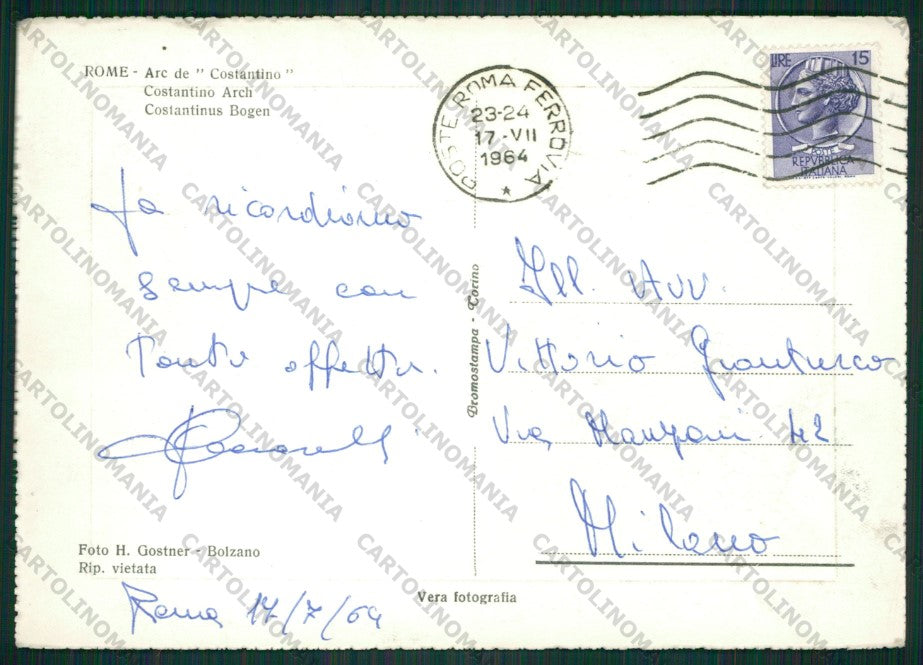 ROME - Arc de " Costantino "
Costantino Arch
Costantinus Bogen
POSTE ROMA FERROVIA
23-24
17-VII
1964
LIRE 15
POSTE
REPVBBLICA
ITALIANA
La ricordiamo
sempre con
tanto affetto.
Foto H. Gostner - Bolzano
Rip. vietata
Roma 17/7/64
Bromostampa - Torino
Vera fotografia
Ill. Avv.
Vittorio
Via Manzoni 42
Milano
CARTOLINOMANIA